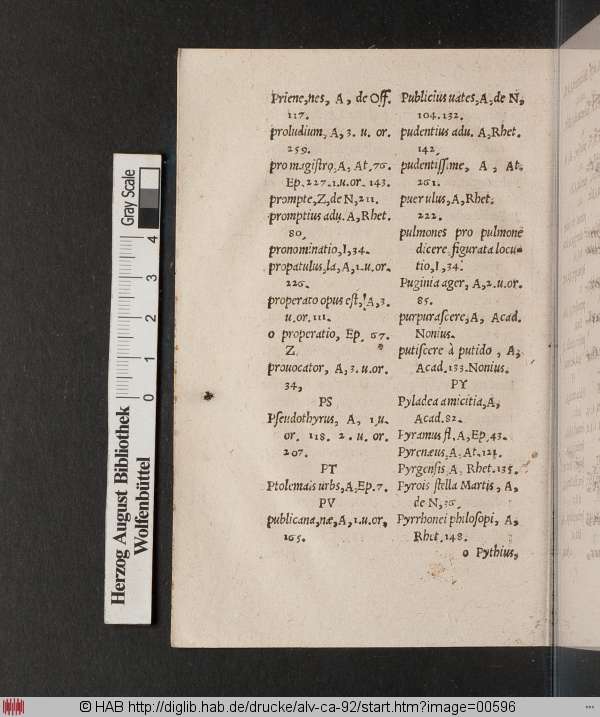 Priene,nes, A, de Off.
117.
proludium, A, 3. u. or.
259.
pro magiſtro, A, At.76.
Ep. 227.1.u.or. 143.
prompte, Z, de N, 211.
promptius adu. A, Rhet.
80.
pronominatio, I, 34.
propatulus, la, A, 1.u.or.
226.
properato opus eſt, A, 3.
u.or. 111.
o properatio, Ep. 67.
Z.
prouocator, A, 3.u.or.
34,
PS
Pſeudothyrus, A, 1.u.
or. 118. 2. u. or.
207.
PT
Ptolemais urbs, A, Ep.7.
PV
publicana,næ, A, 1.u.or,
165.
Publicius uates, A, de N,
104.132.
pudentius adu. A, Rhet.
142.
pudentiſſime, A, At.
261.
puerulus, A, Rhet.
222.
pulmones pro pulmone
dicere figurata locu-
tio, I, 34.
Puginia ager, A, 2.u.or.
85.
purpuraſcere, A, Acad.
Nonius.
putiſcere à putido, A,
Acad.133.Nonius.
PY
Pyladea amicitia, A,
Acad.82.
Pyramus fl. A, Ep.43.
Pyrenæus, A. At.121.
Pyrgenſis A. Rhet.135.
Pyrois ſtella Martis, A,
de N, 36.
Pyrrhonei philoſopi, A,
Rhet.148.
o Pythius,
Herzog August Bibliothek
Wolfenbüttel
0 1 2 3 4
Gray Scale
© HAB http://diglib.hab.de/drucke/alv-ca-92/start.htm?image=00596